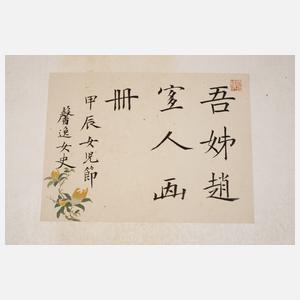 吾姊趙
宧人画
冊
甲辰女児節
馨逸女史